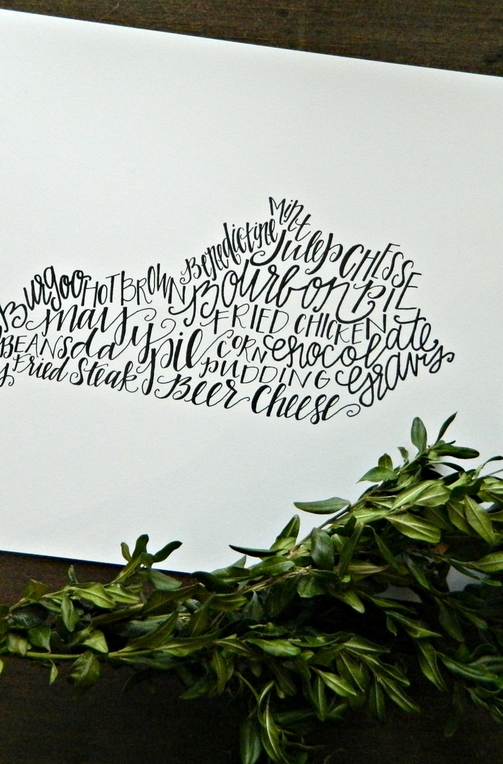 Mint
Julep CHESS
Benedictine
Burgoo HOT BROWN Bourbon PIE
FRIED CHICKEN
BEANS CORN chocolate
Fried Steak PUDDING gravy
Beer Cheese